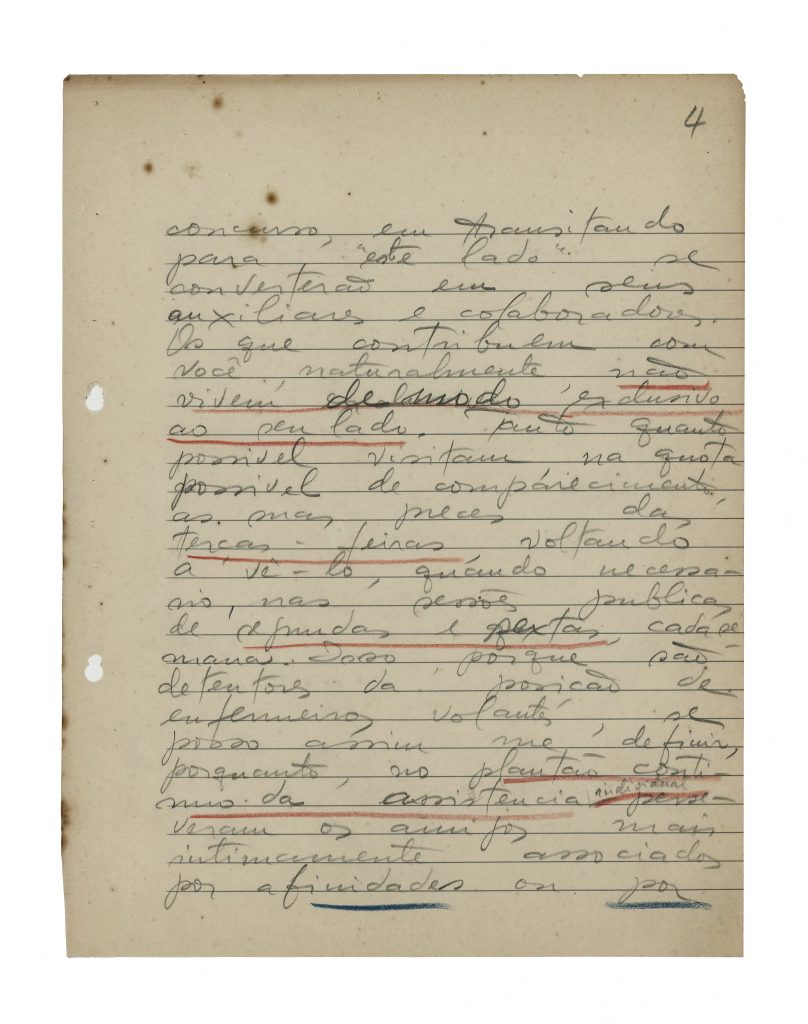 4
concurso, em transitando
para "este lado" se
converterão em seus
auxiliares e colaboradores.
Os que contribuem com
você naturalmente não
vivem de modo exclusivo
ao seu lado. Tanto quanto
possivel visitam na quota
possivel de comparecimento
as preces das
terças-feiras voltando
a vê-lo, quando necessa-
rio, nas sessões publicas
de segundas e sextas, cada se-
mana. Isso porque são
detentores da posição de
enfermeiros volantes, se
posso assim me definir,
porquanto, no plantão conti-
nuo da assistencia individual perse-
veram os amigos mais
intimamente associados
por afinidades ou por